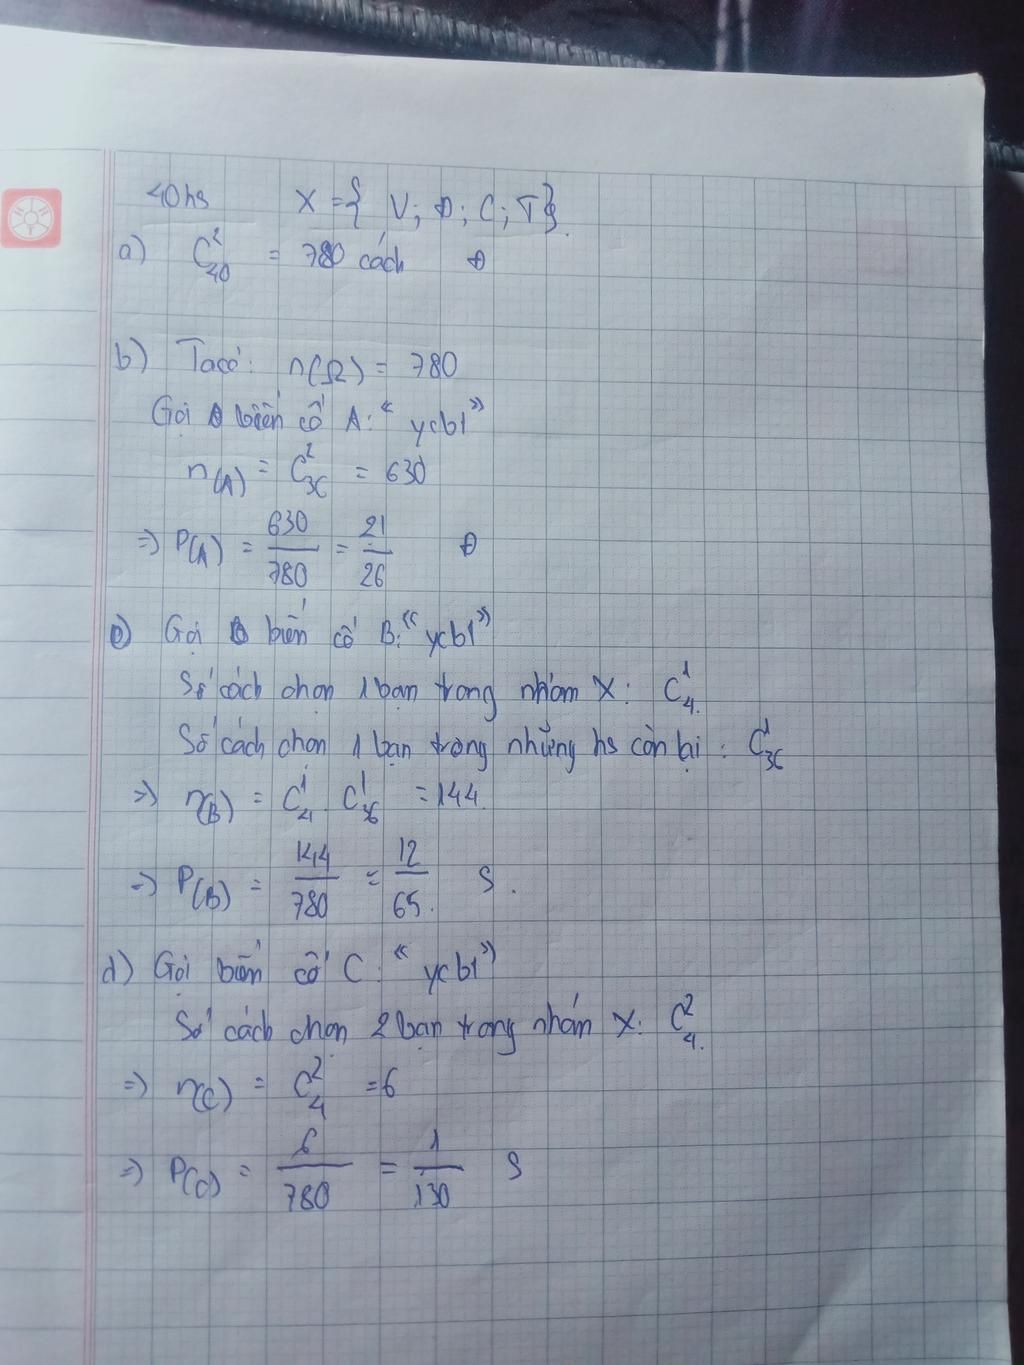 40hs X = { V; Đ; C; T}.
a) C²₄₀ = 780 cách Đ
b) Ta có: n(Ω) = 780
Gọi biến cố A: “ycbt”
n(A) = C²₃₆ = 630
=> P(A) = 630/780 = 21/26 Đ
c) Gọi biến cố B: “ycbt”
Số cách chọn 1 bạn trong nhóm X: C¹₄.
Số cách chọn 1 bạn trong những hs còn lại : C¹₃₆
=> n(B) = C¹₄ . C¹₃₆ = 144.
=> P(B) = 144/780 = 12/65. S.
d) Gọi biến cố C: “ycbt”
Số cách chọn 2 bạn trong nhóm X: C²₄.
=> n(C) = C²₄ = 6
=> P(C) = 6/780 = 1/130 S